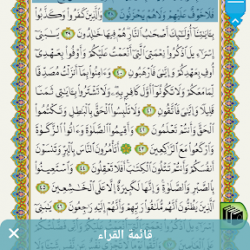 فَلَا خَوْفٌ عَلَيْهِمْ وَلَا هُمْ يَحْزَنُونَ ٣٨ وَالَّذِينَ كَفَرُوا وَكَذَّبُوا
بِـَٔايَٰتِنَا أُولَٰئِكَ أَصْحَٰبُ النَّارِ هُمْ فِيهَا خَٰلِدُونَ ٣٩ يَٰبَنِي
إِسْرَٰٓءِيلَ اذْكُرُوا نِعْمَتِيَ الَّتِي أَنْعَمْتُ عَلَيْكُمْ وَأَوْفُوا بِعَهْدِي
أُوفِ بِعَهْدِكُمْ وَإِيَّٰيَ فَارْهَبُونِ ٤٠ وَءَامِنُوا بِمَا أَنزَلْتُ مُصَدِّقًا
لِّمَا مَعَكُمْ وَلَا تَكُونُوا أَوَّلَ كَافِرٍ بِهِ وَلَا تَشْتَرُوا بِـَٔايَٰتِي ثَمَنًا
قَلِيلًا وَإِيَّٰيَ فَاتَّقُونِ ٤١ وَلَا تَلْبِسُوا الْحَقَّ بِالْبَٰطِلِ وَتَكْتُمُوا
الْحَقَّ وَأَنتُمْ تَعْلَمُونَ ٤٢ وَأَقِيمُوا الصَّلَوٰةَ وَءَاتُوا الزَّكَوٰةَ
وَارْكَعُوا مَعَ الرَّٰكِعِينَ ٤٣ أَتَأْمُرُونَ النَّاسَ بِالْبِرِّ وَتَنسَوْنَ
أَنفُسَكُمْ وَأَنتُمْ تَتْلُونَ الْكِتَٰبَ أَفَلَا تَعْقِلُونَ ٤٤ وَاسْتَعِينُوا
بِالصَّبْرِ وَالصَّلَوٰةِ وَإِنَّهَا لَكَبِيرَةٌ إِلَّا عَلَى الْخَٰشِعِينَ ٤٥
الَّذِينَ يَظُنُّونَ أَنَّهُم مُّلَٰقُوا رَبِّهِمْ وَأَنَّهُمْ إِلَيْهِ رَٰجِعُونَ ٤٦ يَٰبَنِي
قائمة القراء